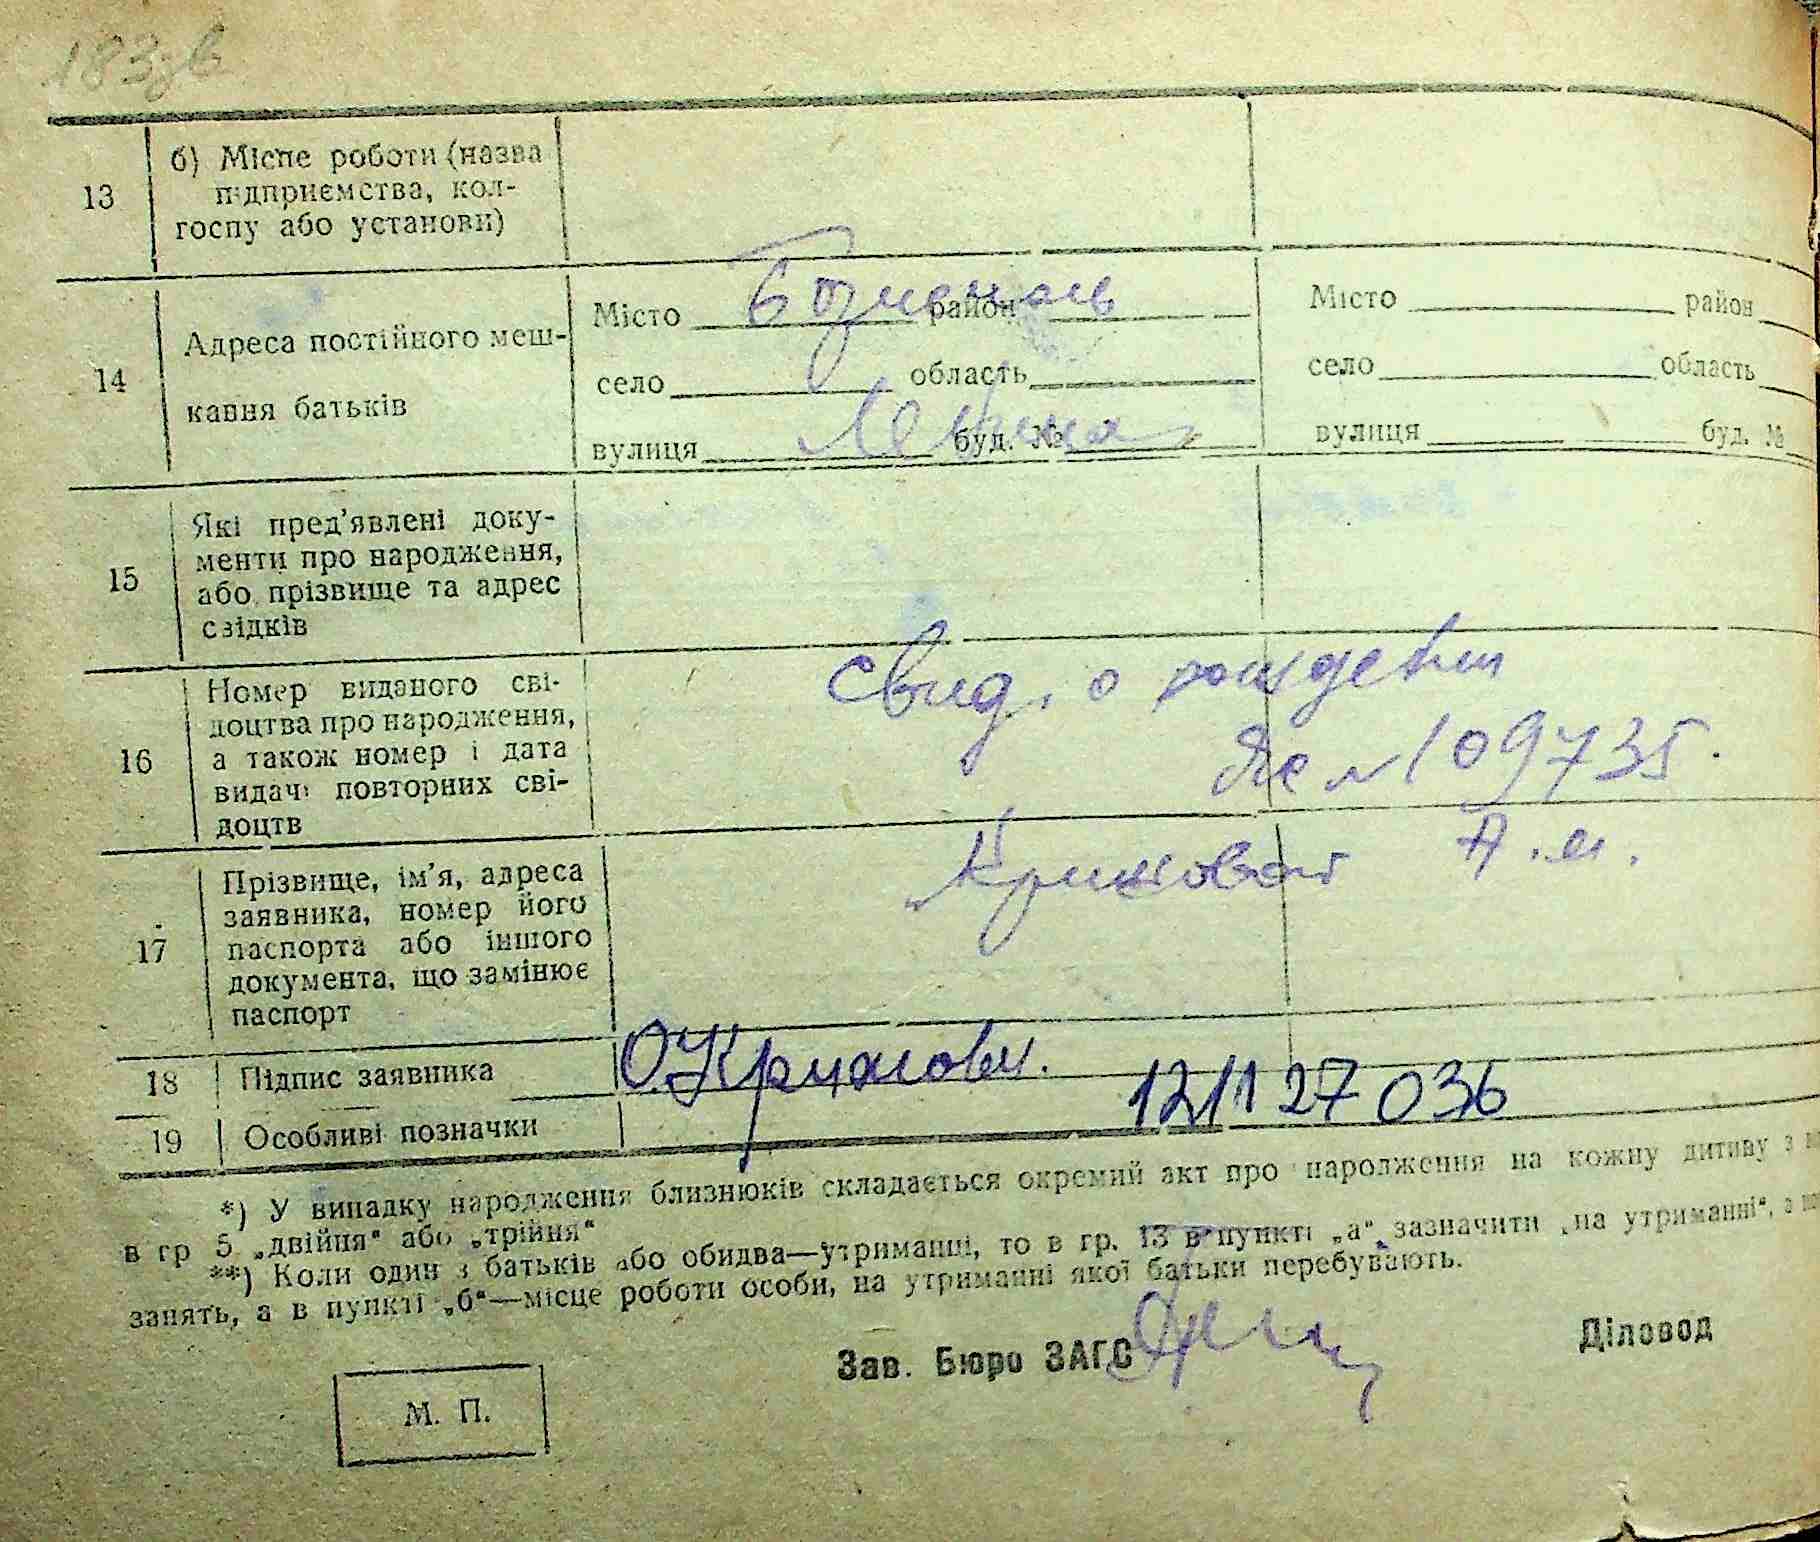 183зв
13
б) Місце роботи (назва
підприємства, кол-
госпу або установи)
14
Адреса постійного меш-
кання батьків
Місто район
село область
вулиця Леніна буд. №
Місто район
село область
вулиця буд. №
15
Які пред'явлені доку-
менти про народження,
або прізвище та адрес
свідків
16
Номер виданого сві-
доцтва про народження,
а також номер і дата
видачі повторних сві-
доцтв
свид. о рождении
№ 109735.
17
Прізвище, ім'я, адреса
заявника, номер його
паспорта або іншого
документа, що замінює
паспорт
А.М.
18
Підпис заявника
19
Особливі позначки
*) У випадку народження близнюків складається окремий акт про народження на кожну дитину з
в гр 5 „двійня“ або „трійня“
**) Коли один з батьків або обидва—утриманці, то в гр. 13 в пункті „а“ зазначити „на утриманні“, а
занять, а в пункті „б“—місце роботи особи, на утриманні якої батьки перебувають.
Зав. Бюро ЗАГС
Діловод
М. П.